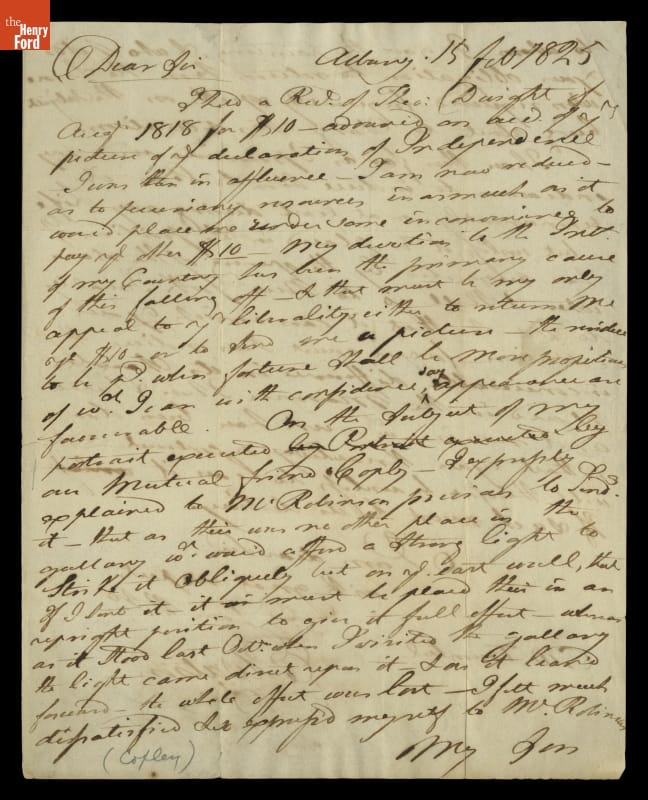 the
Henry
Ford
Albany. 15 Feb 1825
Dear Sir
I had a Rect. of Theo: Dwight of
Augt 1818 for $10 – advanced on acct. of yr
picture of ye declaration of Independence
– I was then in affluence – I am now reduced –
as to pecuniary resources inasmuch as it
would place me under some inconvenience to
pay ye other $10 – My devotion to the Intt.
of my Country has been the primary cause
of this falling off – & that must be my only
appeal to yr liberality either to return me
ye $10 – or to send me a picture – the residue
to be pd. when fortune shall be more propitious
of wh. I can with confidence say appearances are
favourable. On the subject of my
portrait executed by
our Mutual friend Copley – I expressly
explained to Mr. Robinson previous to send.
it – that as there was no other place in the
gallary wh. would afford a strong light to
strike it obliquely but on ye east wall, that
if I sent it – it must be placed there in an
upright position to give it full effect – whereas
as it stood last Octr. when I visited the gallary
the light came direct upon it – & as it leaned
forward – the whole effect was lost – I felt much
dissatisfied & expressed myself to Mr. Robinson
My Son
(Copley)